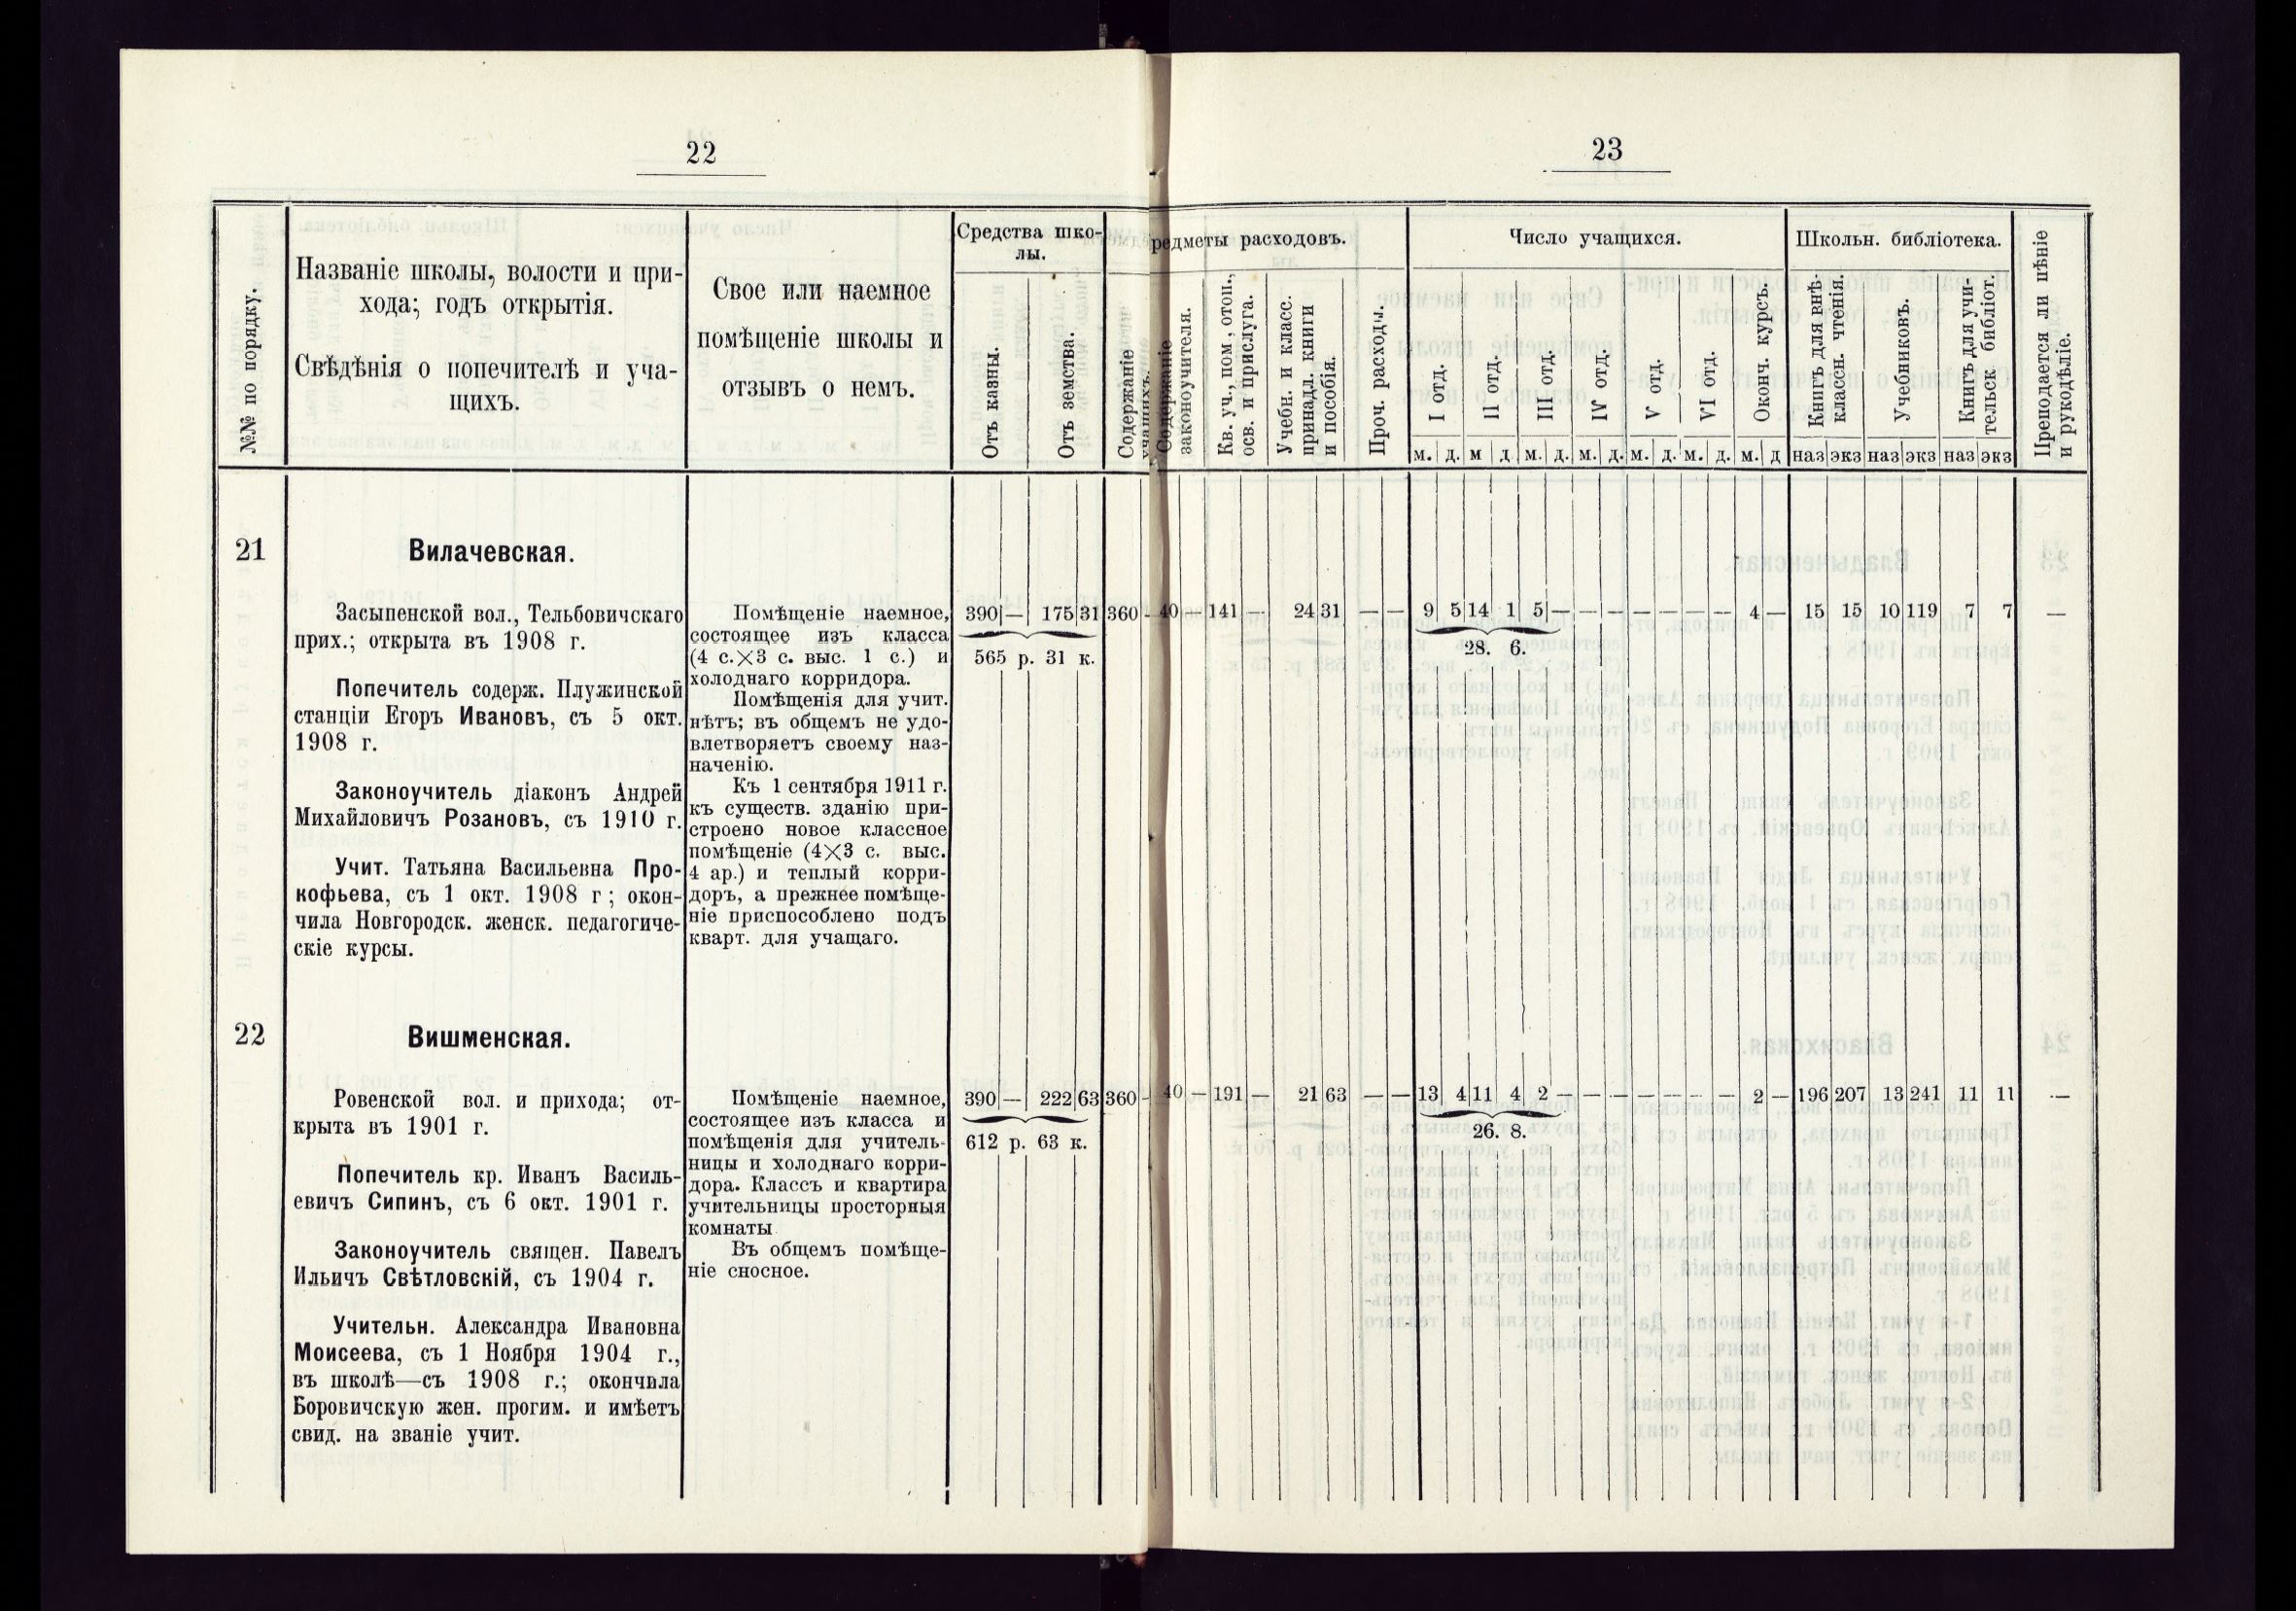 22
№№ по порядку.
Названіе школы, волости и при-
хода; годъ открытія.
Свѣдѣнія о попечителѣ и уча-
щихъ.
Свое или наемное
помѣщеніе школы и
отзывъ о немъ.
Средства шко-
лы.
Отъ казны.
Отъ земства.
Содержаніе
учащихъ.
21
Вилачевская.
Засыпенской вол., Тельбовичскаго
прих.; открыта въ 1908 г.
Попечитель содерж. Плужинской
станціи Егоръ Ивановъ, съ 5 окт.
1908 г.
Законоучитель діаконъ Андрей
Михайловичъ Розановъ, съ 1910 г.
Учит. Татьяна Васильевна Про-
кофьева, съ 1 окт. 1908 г; окон-
чила Новгородск. женск. педагогиче-
скіе курсы.
Помѣщеніе наемное,
состоящее изъ класса
(4 с.×3 с. выс. 1 с.) и
холоднаго корридора.
Помѣщенія для учит.
нѣтъ; въ общемъ не удо-
влетворяетъ своему наз-
наченію.
Къ 1 сентября 1911 г.
къ существ. зданію при-
строено новое классное
помѣщеніе (4×3 с. выс.
4 ар.) и теплый корри-
доръ, а прежнее помѣще-
ніе приспособлено подъ
кварт. для учащаго.
390 — 175 31 360 -
565 р. 31 к.
22
Вишменская.
Ровенской вол. и прихода; от-
крыта въ 1901 г.
Попечитель кр. Иванъ Василь-
евичъ Сипинъ, съ 6 окт. 1901 г.
Законоучитель священ. Павелъ
Ильичъ Свѣтловскій, съ 1904 г.
Учительн. Александра Ивановна
Моисеева, съ 1 Ноября 1904 г.,
въ школѣ—съ 1908 г.; окончила
Боровичскую жен. прогим. и имѣетъ
свид. на званіе учит.
Помѣщеніе наемное,
состоящее изъ класса и
помѣщенія для учитель-
ницы и холоднаго корри-
дора. Классъ и квартира
учительницы просторныя
комнаты
Въ общемъ помѣще-
ніе сносное.
390 — 222 63 360 -
612 р. 63 к.
23
редметы расходовъ.
Содержаніе
законоучителя.
Кв. уч., пом, отоп.,
осв. и прислуга.
Учебн. и класс.
принадл. книги
и пособія.
Проч. расходы.
Число учащихся.
I отд.
II отд.
III отд.
IV отд.
V отд.
VI отд.
Оконч. курсъ.
м. д. м д м. д. м. д. м. д. м. д. м. д
Школьн. библіотека.
Книгъ для внѣ-
классн. чтенія.
Учебниковъ.
Книгъ для учи-
тельск. библіот.
наз экз наз экз наз экз
Преподается ли пѣніе
и рукодѣліе.
40 — 141 — 24 31 — — 9 5 14 1 5 — — — — — — — 4 — 15 15 10 119 7 7 —
28. 6.
40 — 191 — 21 63 — — 13 4 11 4 2 — — — — — — — 2 — 196 207 13 241 11 11 —
26. 8.